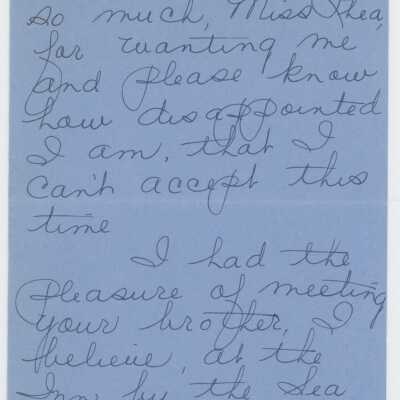 so much, Miss Rhea,
for wanting me
and please know
how disappointed
I am, that I
can't accept this
time
I had the
pleasure of meeting
your brother, I
believe, at the
Inn by the Sea